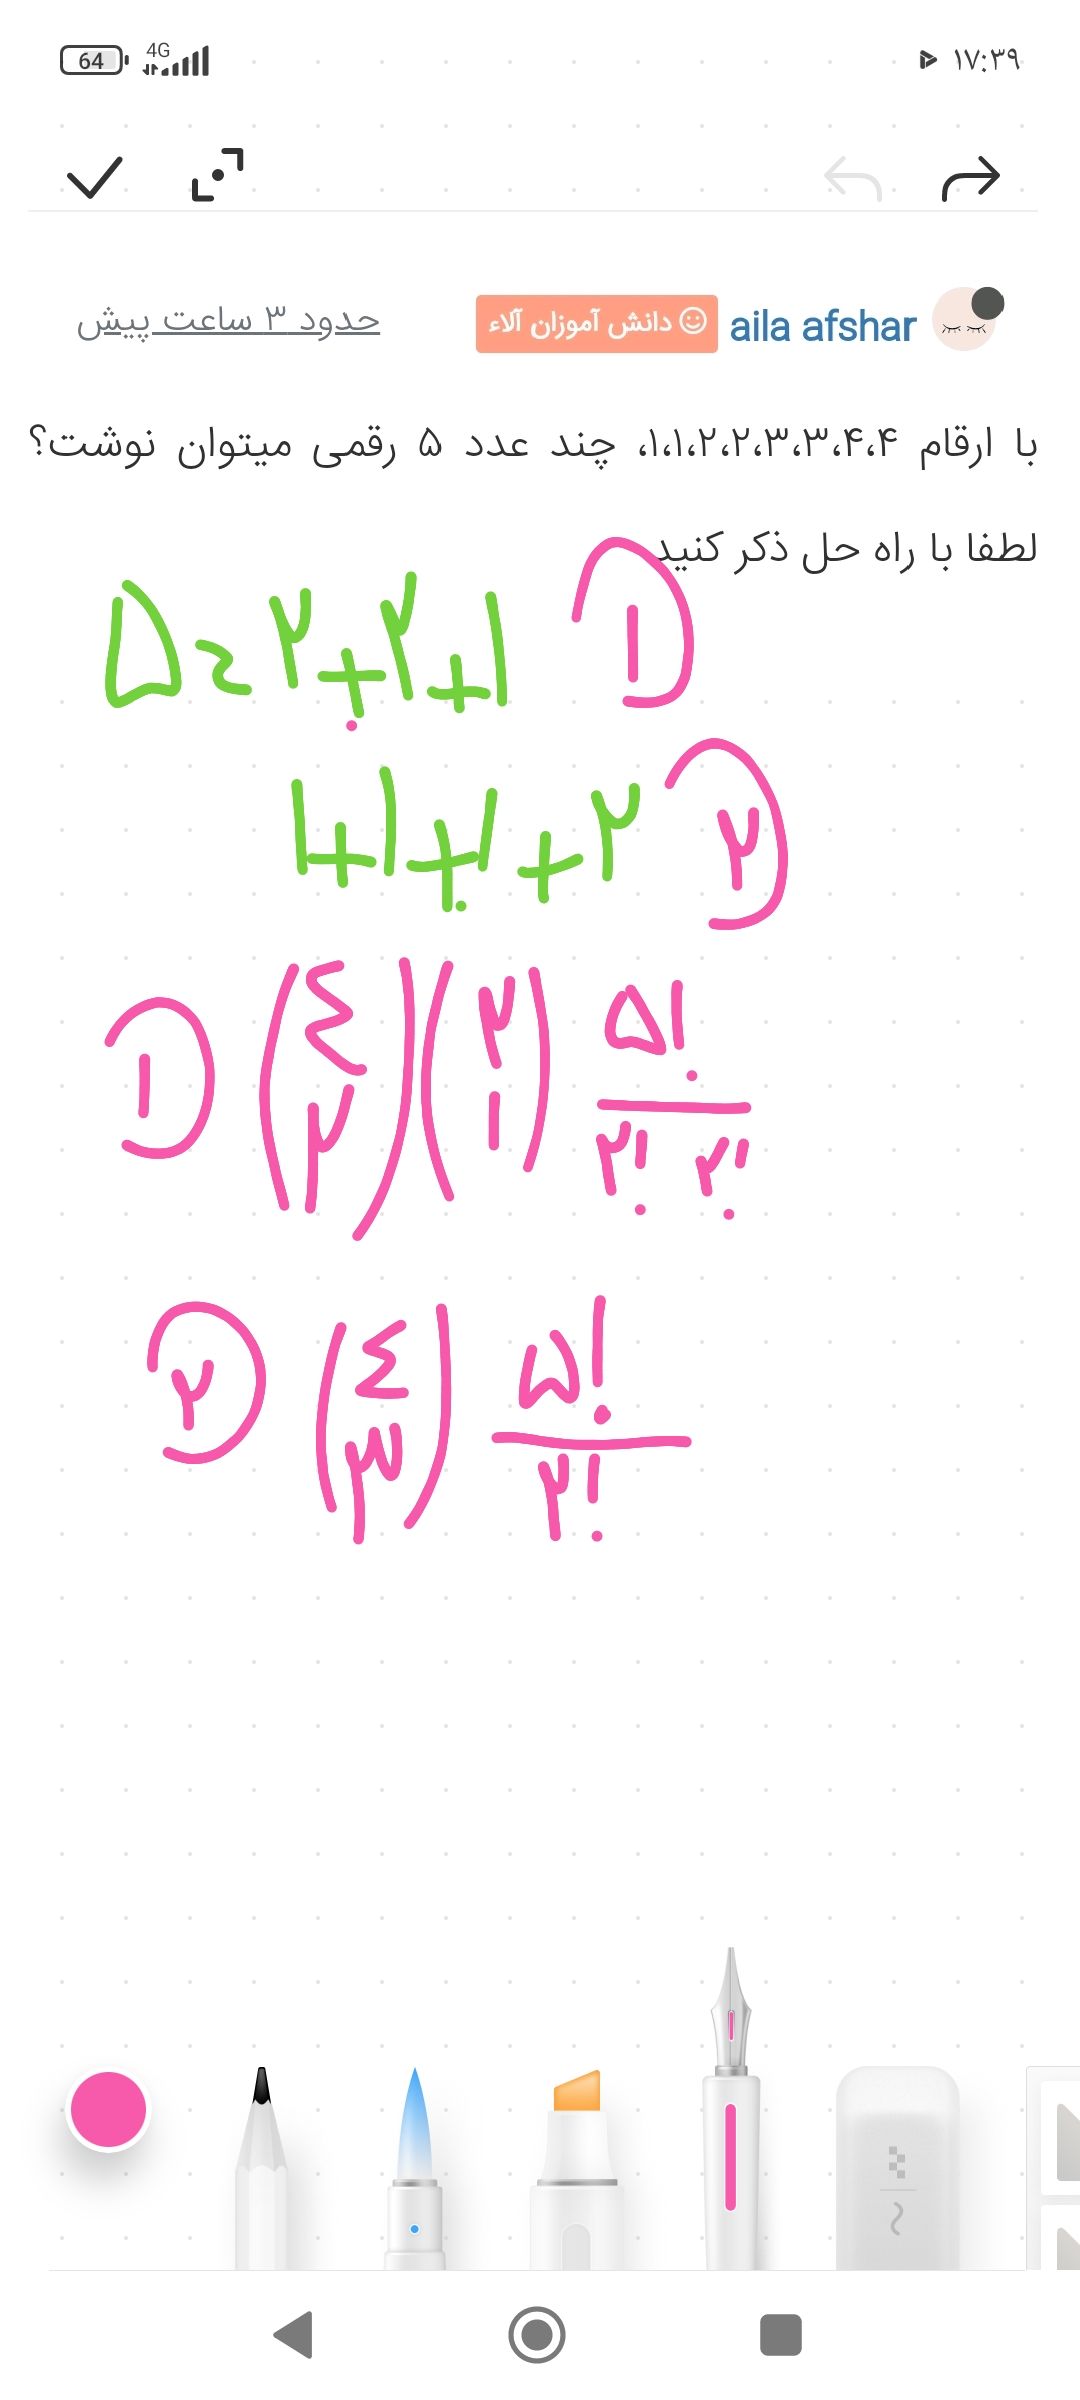 64 4G ۱۷:۳۹
aila afshar دانش آموزان آلاء حدود ۳ ساعت پیش
با ارقام ۱،۱،۲،۲،۳،۳،۴،۴، چند عدد ۵ رقمی میتوان نوشت؟
لطفا با راه حل ذکر کنید
۱) ۱+۲+۲=۵
۲) ۲+۱+۱+۱
۱) (٤ ۲) (۲ ۱) ۵! / ۲! ۲!
۲) (٤ ۳) ۵! / ۲!